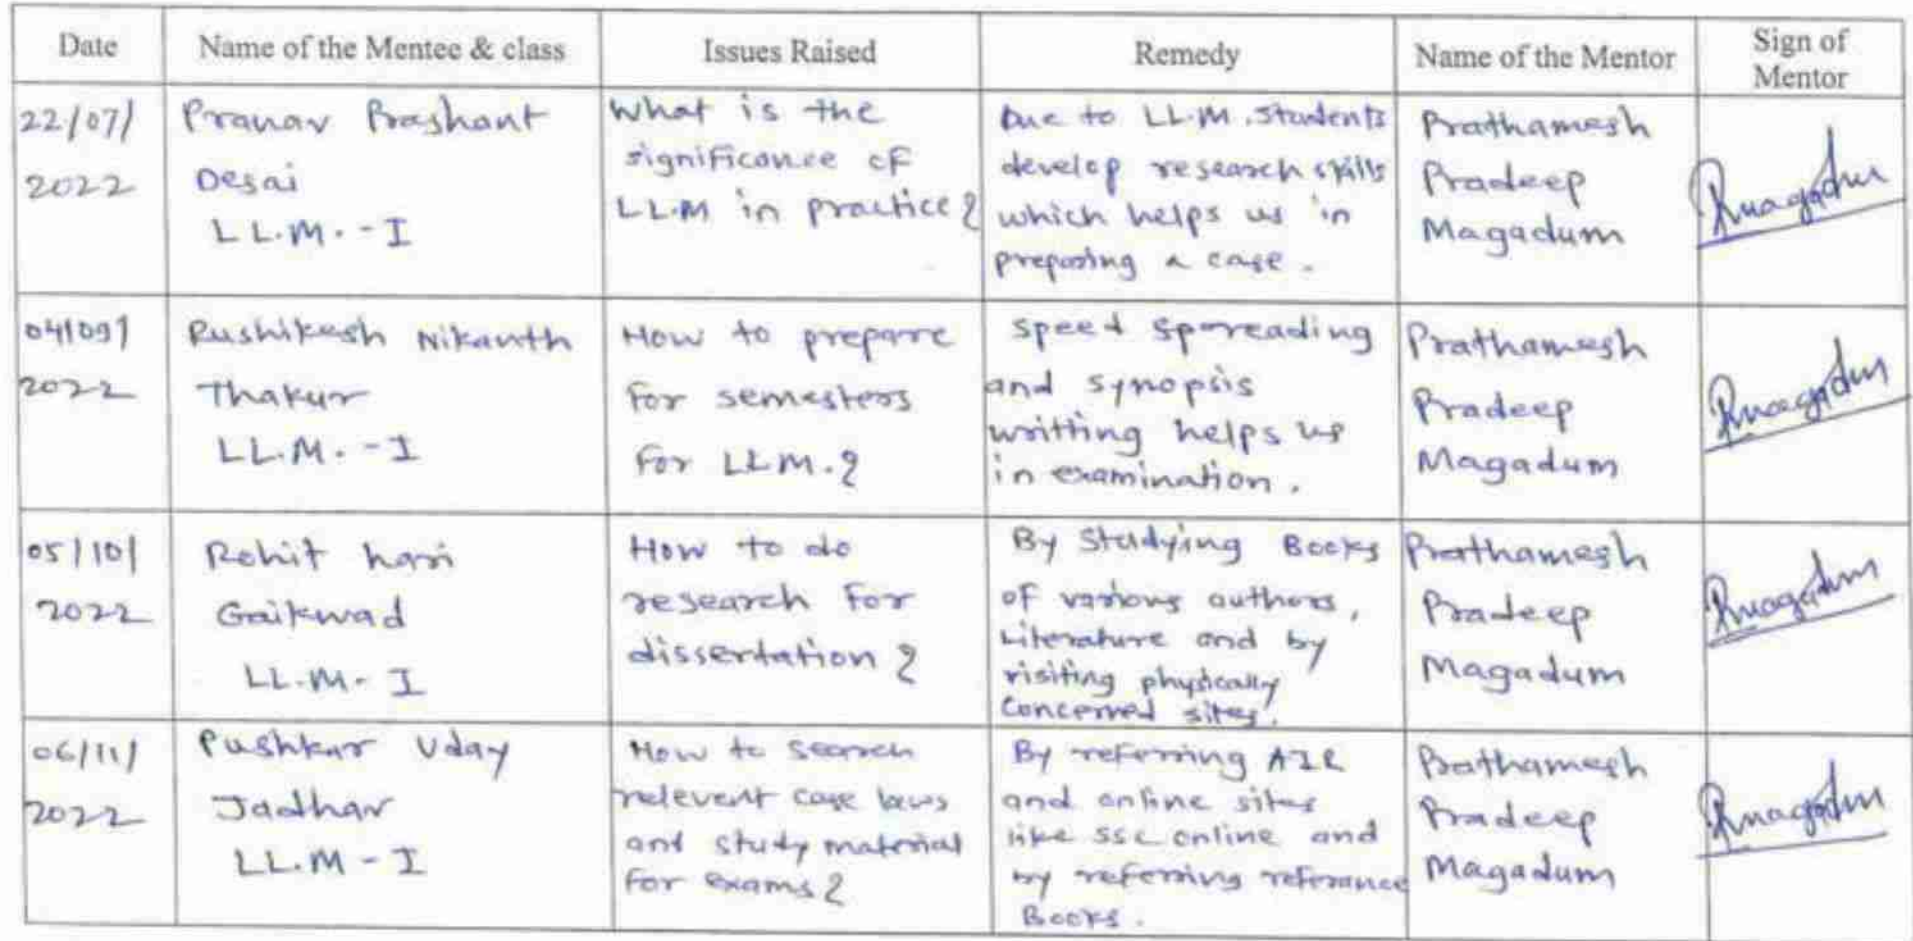 Date
Name of the Mentee & class
Issues Raised
Remedy
Name of the Mentor
Sign of
Mentor
22/07/
2022
Pranav Prashant
Desai
LL.M. - I
What is the
significance of
LL.M in practice?
Due to LL.M. students
develop research skills
which helps us in
preparing a case.
Prathamesh
Pradeep
Magadum
04/09/
2022
Rushikesh Nikanth
Thakur
LL.M. - I
How to prepare
for semesters
for LLM.?
Speed
and synopsis
writting helps us
in examination.
Prathamesh
Pradeep
Magadum
05/10/
2022
Rohit hari
Gaikwad
LL.M- I
How to do
research for
dissertation?
By studying Books
of various authors,
Literature and by
visiting physically
Concerned sites.
Prathamesh
Pradeep
Magadum
06/11/
2022
Pushkar Uday
Jadhav
LL.M - I
How to search
relevent case laws
and study material
for exams?
By referring AIR
and online sites
like ssc online and
by referring referance
Books.
Prathamesh
Pradeep
Magadum